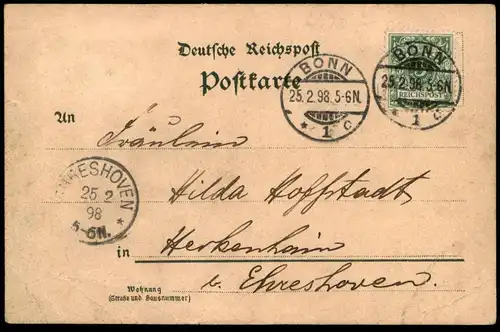 Deutsche Reichspost
Postkarte
BONN
25.2.98.5-6N.
* 1 c
BONN
25.2.98.5-6N.
* 1 c
REICHSPOST
An
Fräulein
Hilda Hoffstadt
EHRESHOVEN
25 2
98
5-6N.
*
in
Herkenhain
b. Ehreshoven.
Wohnung
(Straße und Hausnummer)